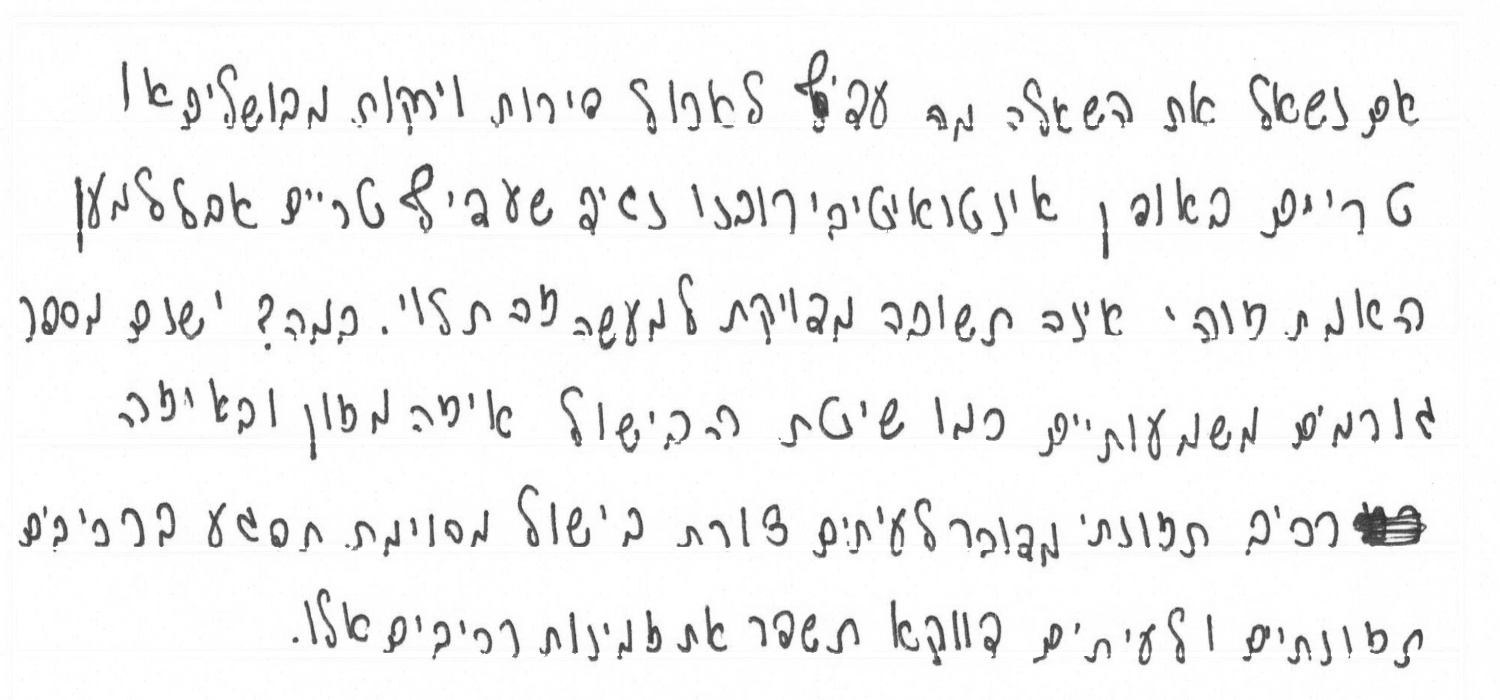 אם נשאל את השאלה מה עדיף לאכול פירות וירקות מבושלים או
טריים באופן אינטואיטיבי רובנו נגיד שעדיף טריים אבל למען
האמת זוהי אינה תשובה מדויקת למעשה זה תלוי. במה? ישנם מספר
גורמים משמעותיים כמו שיטת הבישול איזה מזון ובאיזה
רכיב תזונתי מדובר לעיתים צורת בישול מסוימת תפגע ברכיבים
תזונתים ולעיתים דווקא תשפר את זמינות רכיבים אלו.